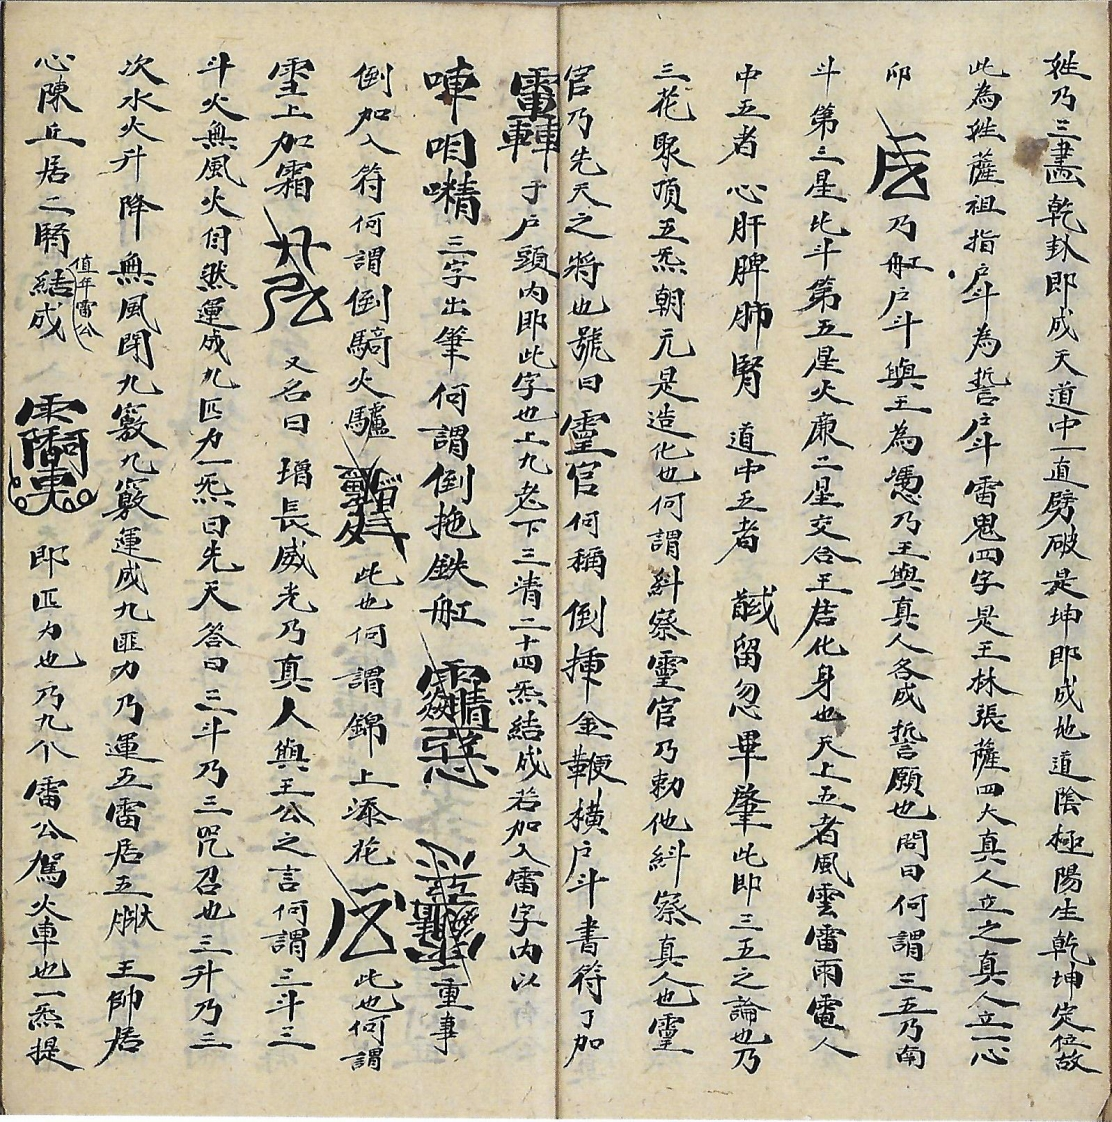 姓乃三畫乾卦即成天道中一直劈破是坤即成地道陰極陽生乾坤定位故
此為姓薩祖指戶斗為誓戶斗雷鬼四字是王林張薩四大真人立之真人立一心
邜乃舡戶斗與王為憑乃王與真人各成誓願也問曰何謂三五乃南
斗第三星北斗第五星火廉二星交合王居化身也天上五者風雲雷雨電人
中五者心肝脾肺腎道中五者馘留忽畢肇此即三五之論也乃
三花聚頂五炁朝元是造化也何謂糾察靈官乃勅他糾察真人也靈
官乃先天之將也號曰靈官何稱倒揰金鞭橫戶斗書符丁加
于戶頭內即此字也上九老下三清二十四炁結成若加入雷字內以
㖀三字出筆何謂倒拖鉄舡重事
倒加入符何謂倒騎火驢此也何謂錦上添花此也何謂
雪上加霜又名曰增長威光乃真人與王公之言何謂三斗三
斗火無風火自燃運成九匹力一炁曰先天答曰三斗乃三咒召也三升乃三
次水火升降無風閉九竅九竅運成九匪力乃運五雷居五臟王帥居
心陳丘居二腎結成值年雷公即匹力也乃九个雷公駕火車也一炁提